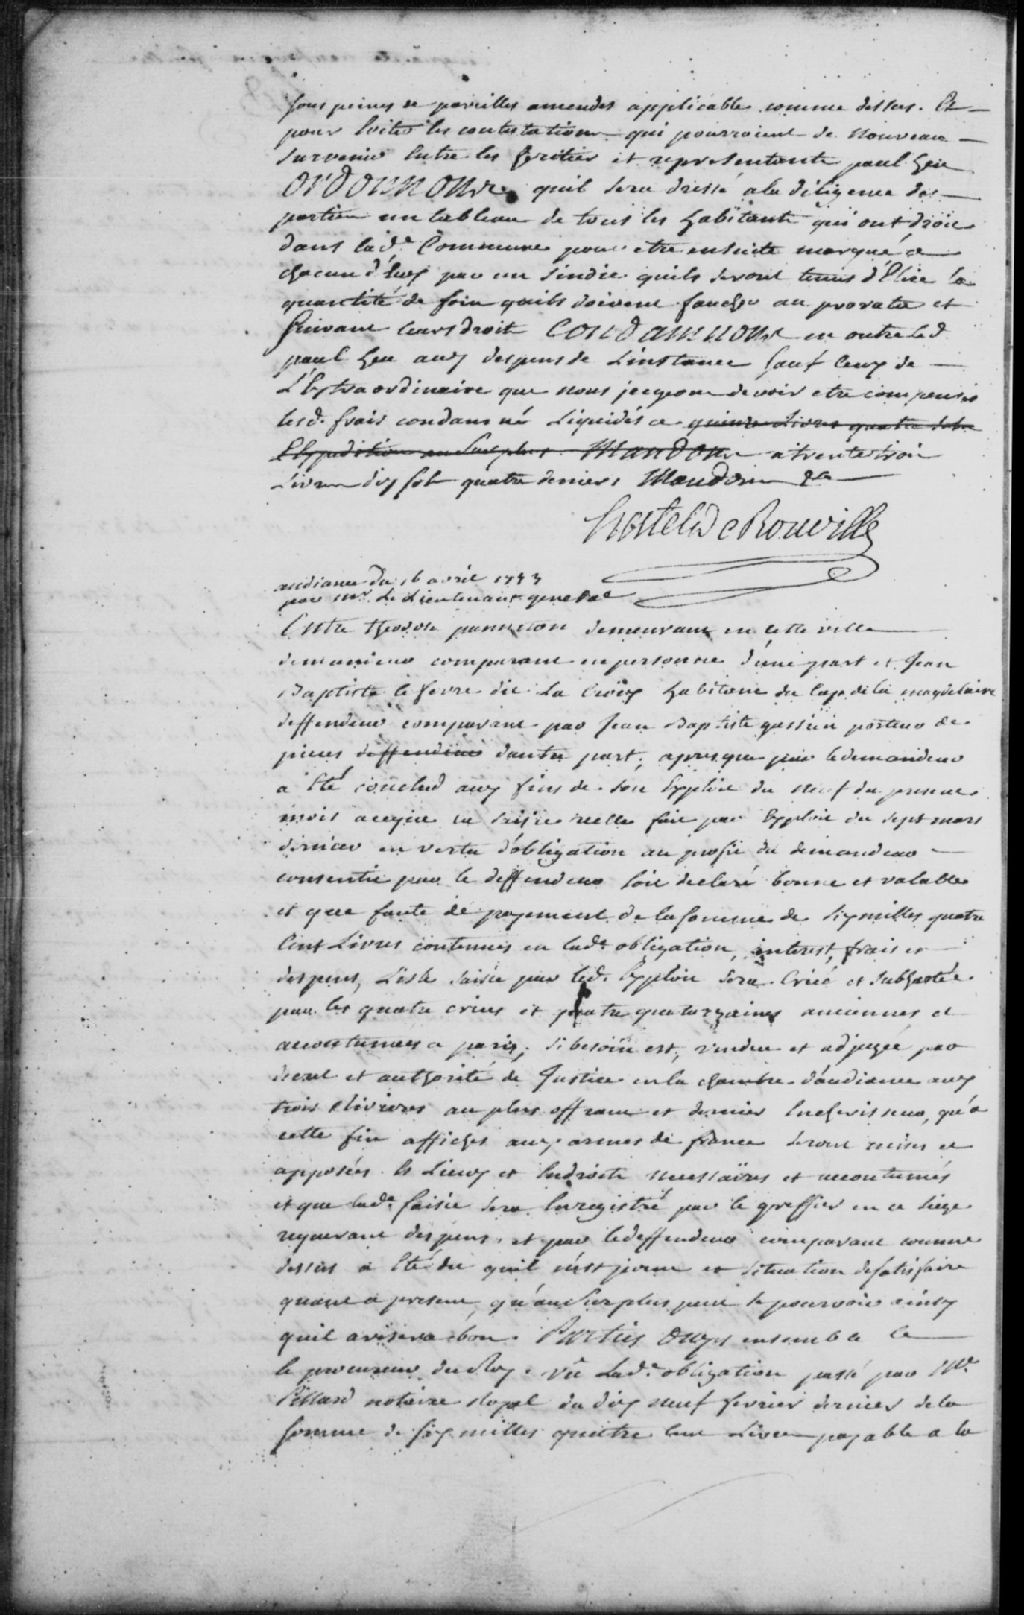 sous peines de pareilles amendes applicable comme dessus. Et
pour Eviter les contestations qui pourroient de nouveau
survenir Entre les heritiers et representants paul heu
ordonnons quil sera dressé a la diligence des
parties un tableau de tous les habitants qui ont droit
dans lad.e Commune pour etre ensuite marqué a
chacun d'Eux par un sindic quils seront tenus d'Elire la
quantité de foin quils doivent faucher au prorata et
suivant leurs droit Condamnons en outre led
paul heu aux despens de L'instance sauf ceux de
L'Extraordinaire que nous jugeons devoir etre compensés
lesd. frais condamné Liquidés a quinze Livres quatre sols
L'Expedition en Surplus Mandons a trente trois
Livres dix sols quatre deniers Mandons &a
hertel De Rouville
audiance du 16 avril 1753
par mr. Le Lieutenant general
Entre theodore panneton demeurant en cette ville
demandeur comparant en personne d'une part et Jean
Baptiste le fevre dit La Croix habitant du Cap de la magdelaine
deffendeur comparant par Jean Baptiste porteur de
pieces deffendeur dautre part, apres que par le demandeur
a Eté conclud aux fins de son Exploit du neuf du present
mois a ce que la saisie reelle fait par Exploit du sept mars
dernier en vertu d'obligation au profit du demandeur
consentie par le deffendeur soit declaré bonne et valable
et que faute de payement de la somme de six milles quatre
Cent Livres contenues en lad.e obligation, interest, frais et
despens, L'isle saisie par led. Exploit sera Criée et subhastée
par les quatre criées et quatre quatorzaines anciennes et
accoutumées a paris, si besoin est, vendue et adjugée par
decret et authorité de Justice en la chambre d'audiance aux
trois Rivieres au plus offrant et dernier Encherisseur, qu'a
cette fin affiches aux armes de france seront mises et
apposées Es Lieux et Endroits necessaires et accoutumés
et que lad.e saisie sera Enregistré par le greffier en ce siege
requerant despens. et par le deffendeur comparant comme
dessus a Eté dit quil n'est point en situation de satisfaire
quant a present, qu'au Surplus peut se pourvoir ainsy
quil avisera bon. Parties ouyes ensemble
le procureur du Roy. vû Lad.e obligation passé par Me
Pillard notaire Royal du dix neuf fevrier dernier de la
somme de six milles quatre Cent Livres payable a la